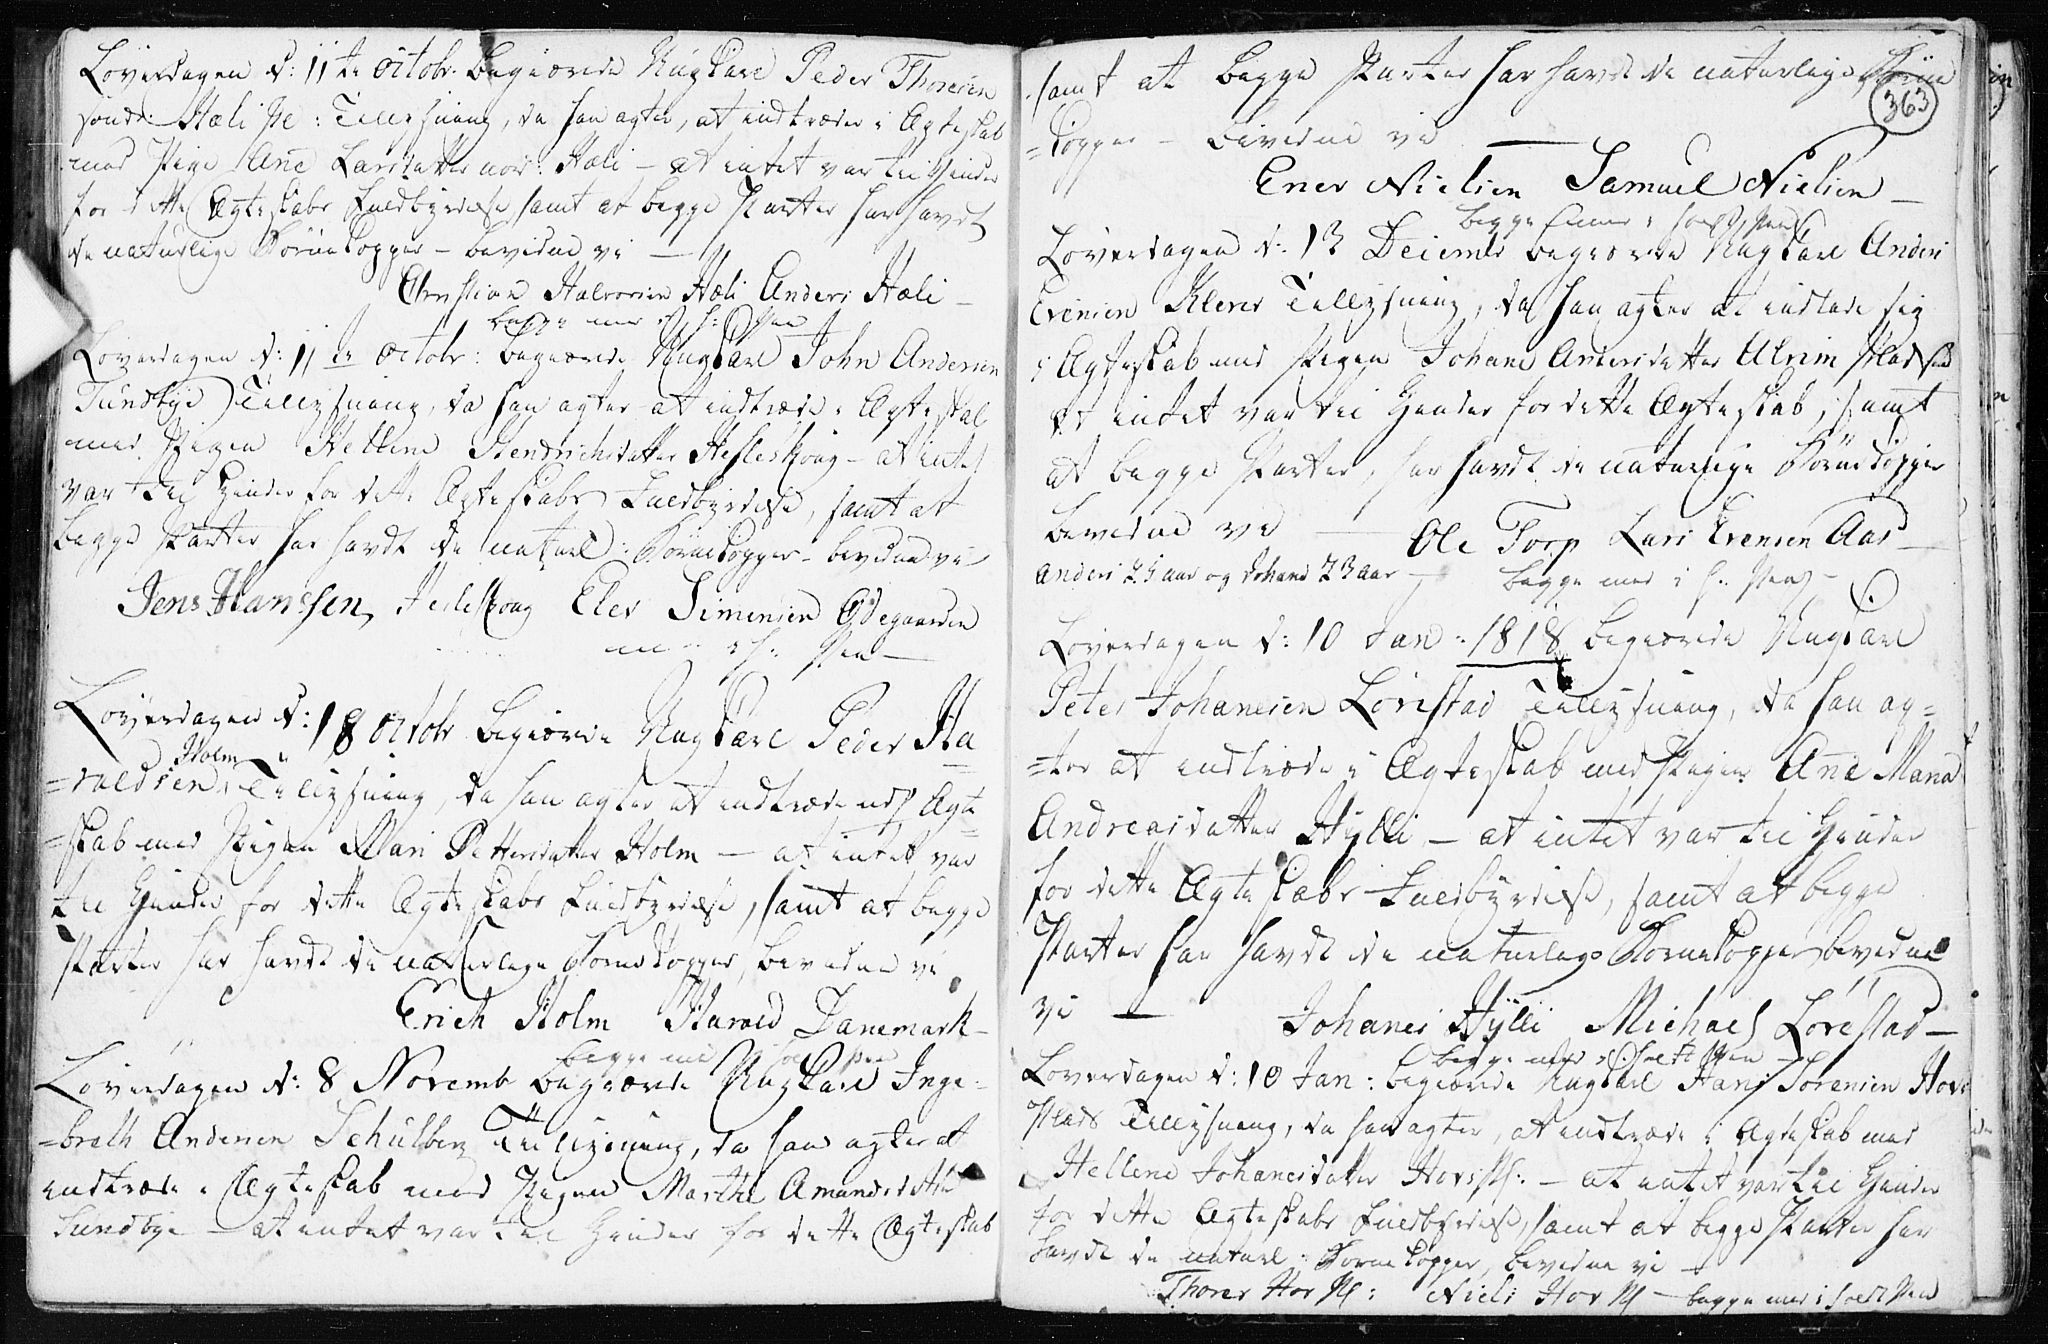 Løverdagen d: 11te Octobr. begiærede Ungkarl Peder Thoresen
søndr: Hæli Pl: Tillysning, da han agter, at indtræde i Ægteskab
med Pige Ane Larsdatter nor: Hæli – at intet var til Hinder
for dette Ægteskabs Fuldbyrdelse samt at begge Parter har havdt
de naturlige Børnekopper – bevidne vi —
Christian Halvorsen Hæli Anders Hæli –
begge med i h: Pen
Løverdagen d: 11te Octobr: begiærede Ungkarl John Andersen
Sundbye Tillysning, da han agter at indtræde i Ægteskab
med Pigen Hellene Hendrichsdatter Hesleskoug – at intet
var til Hinder for dette Ægteskabs Fuldbyrdelse, samt at
begge Parter har havdt de naturl: Børnekopper – bevidne vi –
Jens Hanssen, Hesleskoug Elev Simensen Ødegaarden
med i h: Pen —
Løverdagen d: 18 Octobr begiærede Ungkarl Peder Ha
=raldsen Holm Tillysning, da han agter at indtræde udj Ægte
=skab med Pigen Mari Pettersdatter Holm — at intet var
til Hinder for dette Ægteskabs Fuldbyrdelse, samt at begge
Parter har havdt de naturlige Børnekopper, bevidne vi
Erich Holm Harald Danemark –
begge med holdt Pen
Løverdagen d: 8 Novemb begiærede Ungkarl Inge=
=breth Andersen Schulberg Tillysning, da han agter at
indtræde i Ægteskab med Pigen Marthe Amundsdatter
Sundbye – at intet var til Hinder for dette Ægteskab
363
samt at begge Parter har havdt de naturlige Børne
=kopper – bevidne vi —
Ener Nielsen Samuel Nielsen –
begge Enner i holdt Pen
Løverdagen d: 13 Decembr begiærede Ungkarl Anders
Evensen Klever Tillysning, da han agter at indlade sig
i Ægteskab med Pigen Johane Andersdatter Ulvim Pladsen
at intet var til Hinder for dette Ægteskab, samt
at begge Parter, har havdt de naturlige Børnekopper
bevidne vi — Ole Torp Lars Evensen Aas –
Anders 25 aar og Johane 23 aar – begge med i h: Pen –
Løverdagen d: 10 Jan: 1818 begiærede Ungkarl
Peter Johanesen Lövestad Tillysning, da han ag=
=ter at indtræde i Ægteskab med Pigen Ane Maria
Andreasdatter Hylli – at intet var til Hinder
for dette Ægteskabs Fuldbyrdelse, samt at begge
Parter har havdt de naturlige Børnekopper bevidne
vi — Johanes Hylli Michael Lövestad –
begge med i holdt Pen –
Løverdagen d: 10 Jan: begiærede Ungkarl Hans Sørensen Hovs
Plads Tillysning, da han agter, at indtræde i Ægteskab med
Hellene Johanesdatter Hovs Pl: – at intet var til Hinder
for dette Ægteskabs Fuldbyrdelse, samt at begge Parter har
havdt de naturl: Børnekopper, bevidne vi –
Thorer Hov Pl: Niels Hov Pl – begge med i holdt Pen